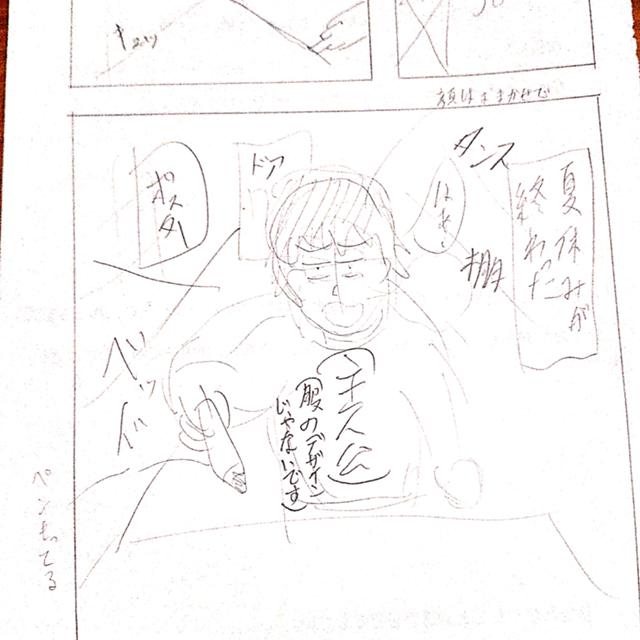 顔はおまかせで
タンス
夏休みが
終わった
棚
ドア
ポスター
ベッド
主人公
(服のデザイン
じゃないです)
ペンもってる